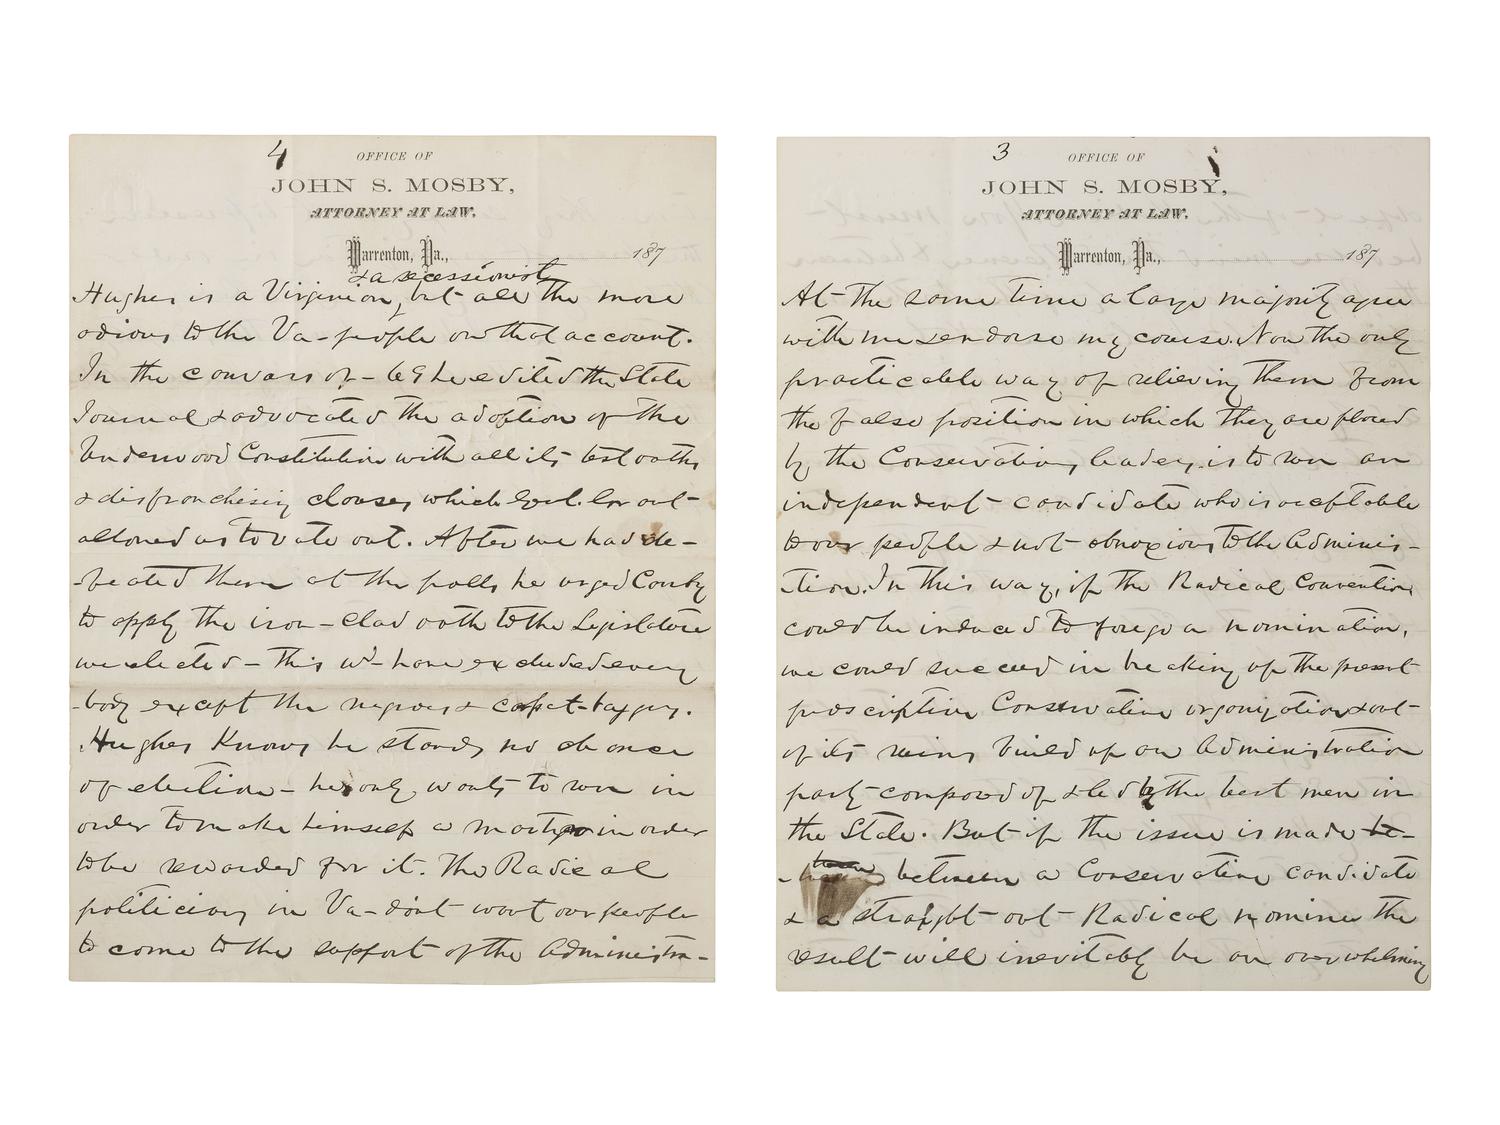 4
OFFICE OF
JOHN S. MOSBY,
ATTORNEY AT LAW.
Warrenton, Va., 187
& a secessionist
Hughes is a Virginian, but all the more
odious to the Va- people on that account.
In the canvass of - 69 he edited the State
Journal & advocated the adoption of the
Underwood Constitution with all its test oaths
& disfranchising clauses which Genl. Grant
allowed us to vote out. After we had de-
-feated them at the polls he urged Canby
to apply the iron-clad oath to the Legislature
we elected - This wd- have excluded every
-body except the negroes & carpet-baggers.
Hughes Knows he stands no chance
of election - he only wants to run in
order to make himself a martyr in order
to be rewarded for it. The Radical
politicians in Va- don't want our people
to come to the support of the Administra-
3
OFFICE OF
JOHN S. MOSBY,
ATTORNEY AT LAW.
Warrenton, Va., 187
At the same time a large majority agree
with me & endorse my course. Now the only
practicable way of relieving them from
the false position in which they are placed
by the Conservative leaders is to run an
independent candidate who is acceptable
to our people & not obnoxious to the Adminis-
-tion. In this way, if the Radical Convention
could be induced to forego a nomination,
we could succeed in breaking up the present
proscriptive Conservative organization & out
of its ruins build up an Administration
party composed of & led by the best men in
the State. But if the issue is made be-
between a Conservative candidate
& a straight-out Radical nominee the
result will inevitably be an overwhelming